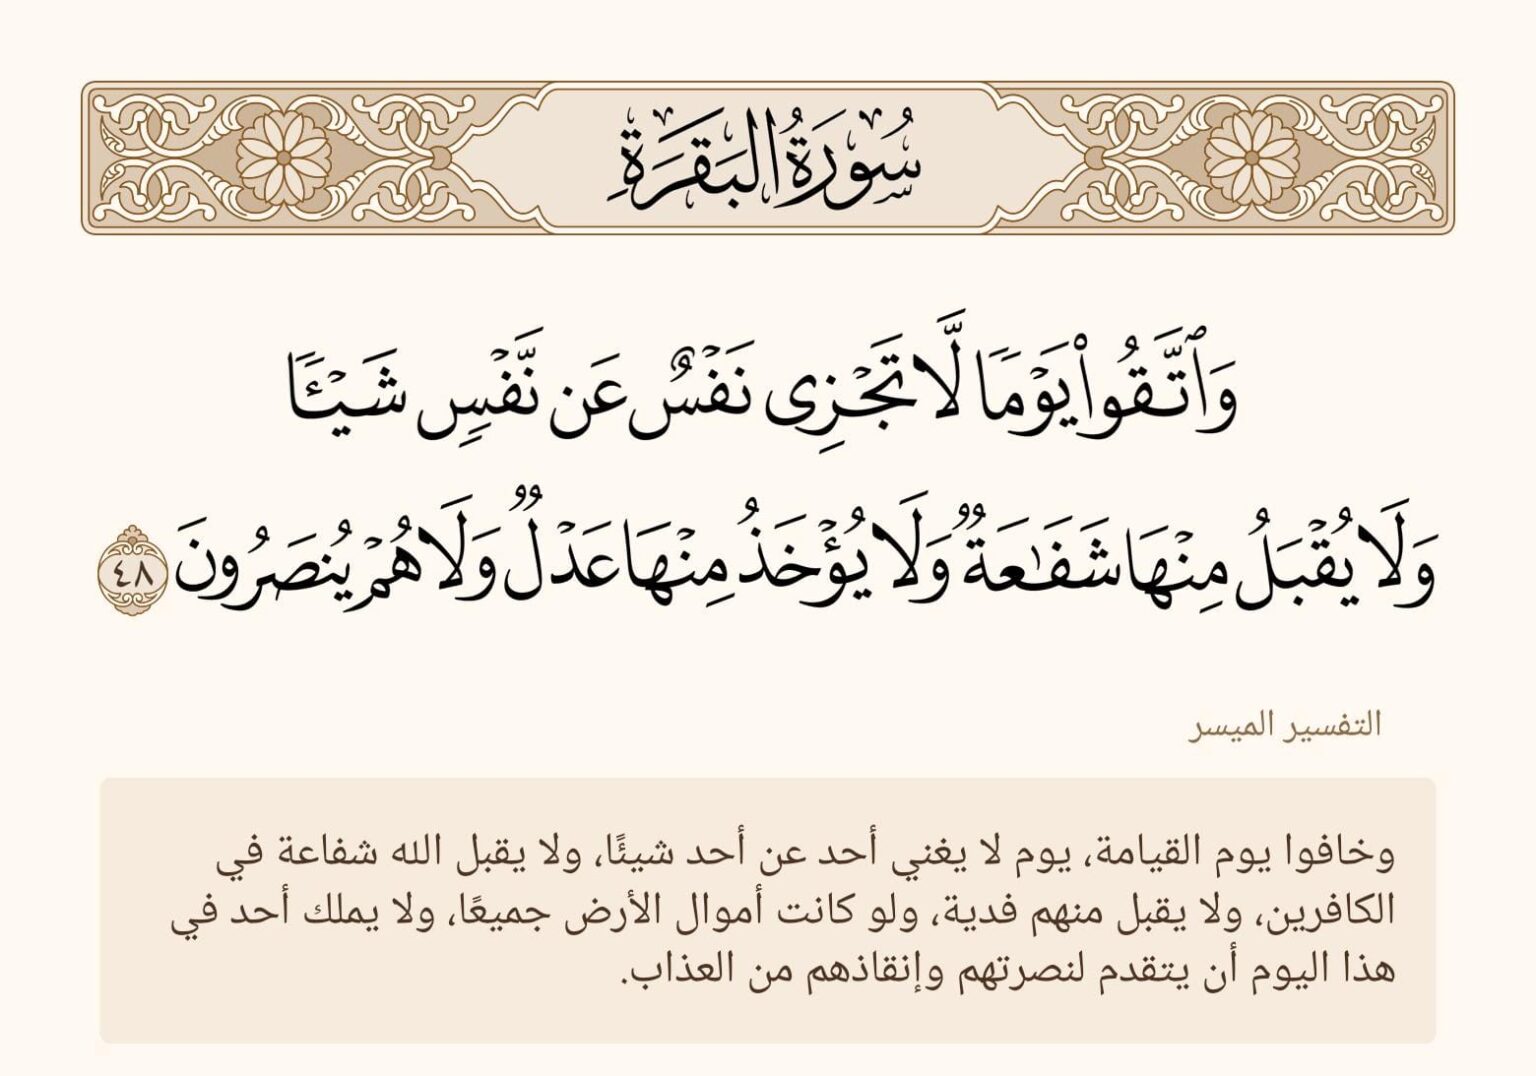 سُورَةُ البَقَرَةِ
وَٱتَّقُوا۟ يَوْمًا لَّا تَجْزِى نَفْسٌ عَن نَّفْسٍ شَيْـًٔا
وَلَا يُقْبَلُ مِنْهَا شَفَـٰعَةٌ وَلَا يُؤْخَذُ مِنْهَا عَدْلٌ وَلَا هُمْ يُنصَرُونَ ٤٨
التفسير الميسر
وخافوا يوم القيامة، يوم لا يغني أحد عن أحد شيئًا، ولا يقبل الله شفاعة في
الكافرين، ولا يقبل منهم فدية، ولو كانت أموال الأرض جميعًا، ولا يملك أحد في
هذا اليوم أن يتقدم لنصرتهم وإنقاذهم من العذاب.